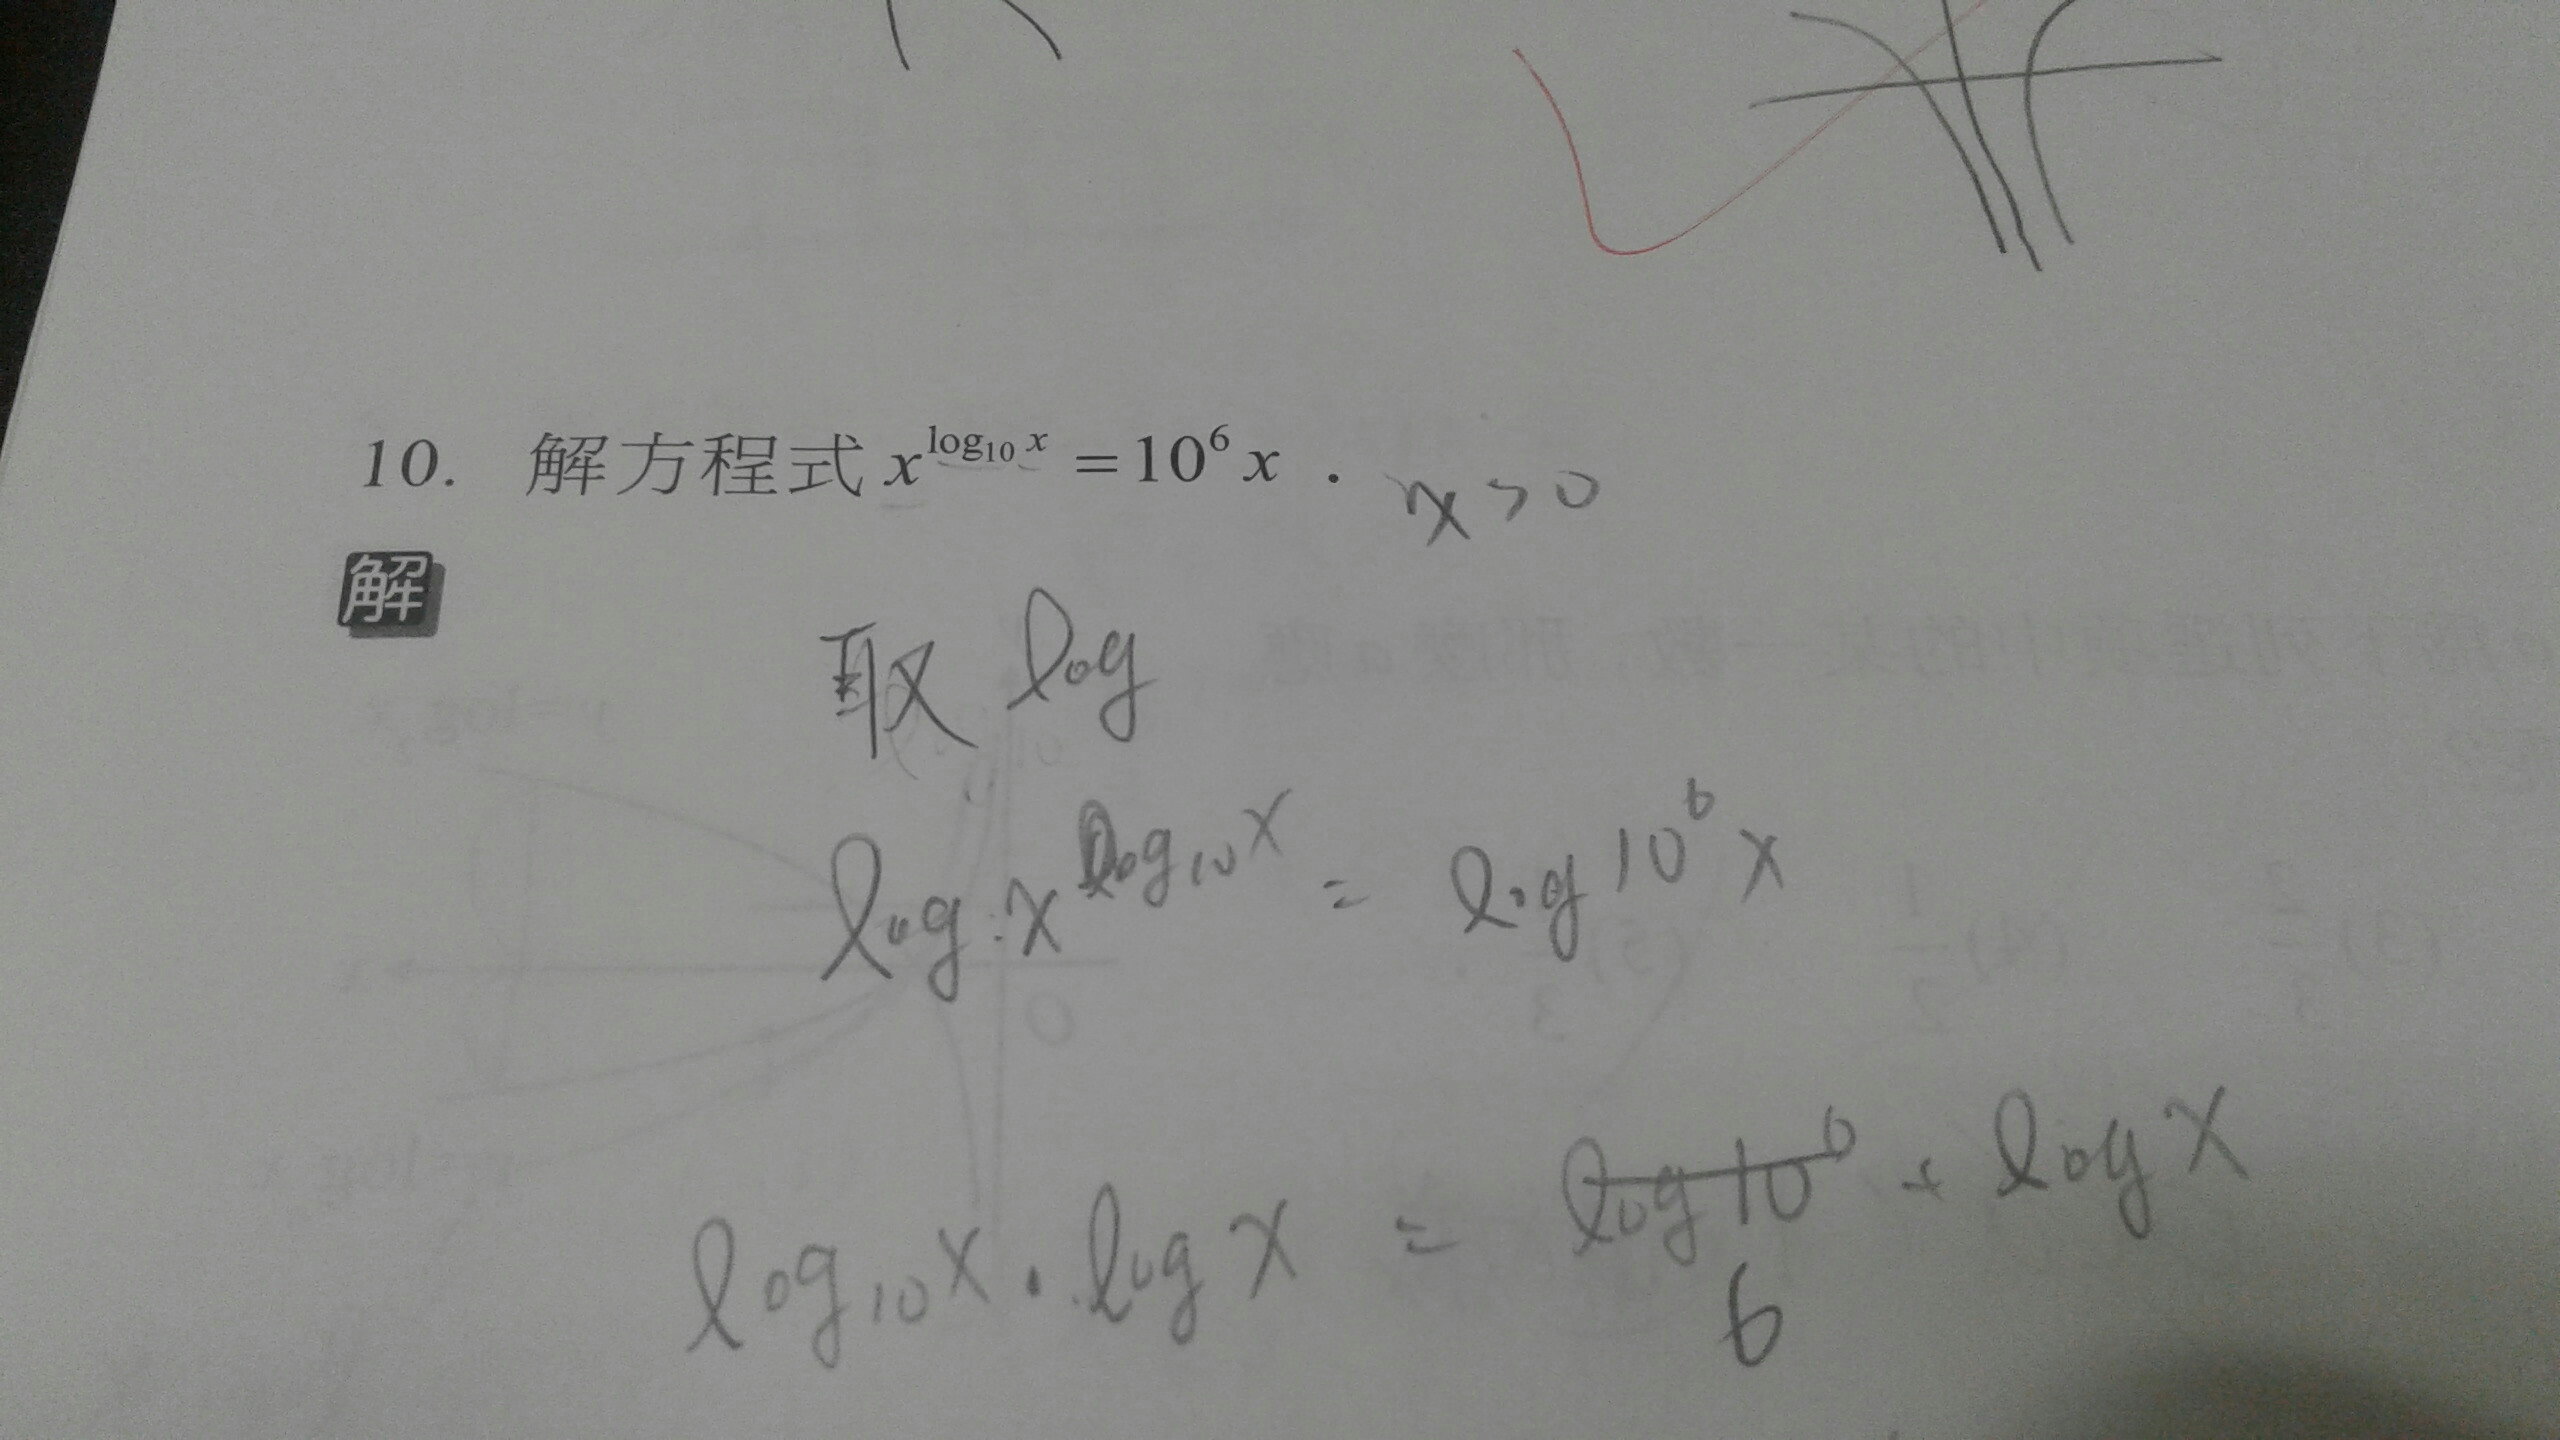 10. 解方程式 x^{log₁₀ x} = 10⁶ x . x > 0
解
取 log
log x^{log₁₀ x} = log 10⁶ x
log₁₀ x · log x = log 10⁶ + log x
6